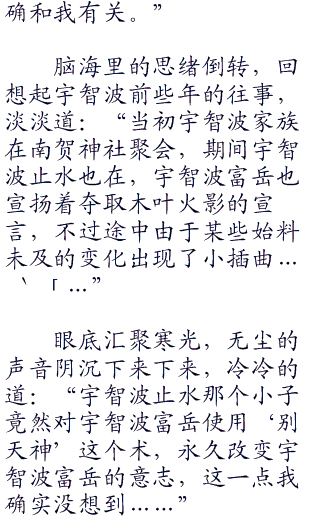 确和我有关。”
脑海里的思绪倒转，回
想起宇智波前些年的往事，
淡淡道：“当初宇智波家族
在南贺神社聚会，期间宇智
波止水也在，宇智波富岳也
宣扬着夺取木叶火影的宣
言，不过途中由于某些始料
未及的变化出现了小插曲…
‵「…”
眼底汇聚寒光，无尘的
声音阴沉下来下来，冷冷的
道：“宇智波止水那个小子
竟然对宇智波富岳使用‘别
天神’这个术，永久改变宇
智波富岳的意志，这一点我
确实没想到……”